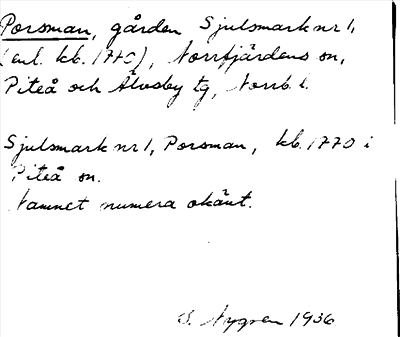 Porsman, gården Sjulsmark nr 1,
(enl. kb. 1770), Norrfjärdens sn,
Piteå och Älvsby tg, Norrb. l.
Sjulsmark nr 1, Porsman, kb. 1770 i
Piteå sn.
Namnet numera okänt.
S. Nygren 1936